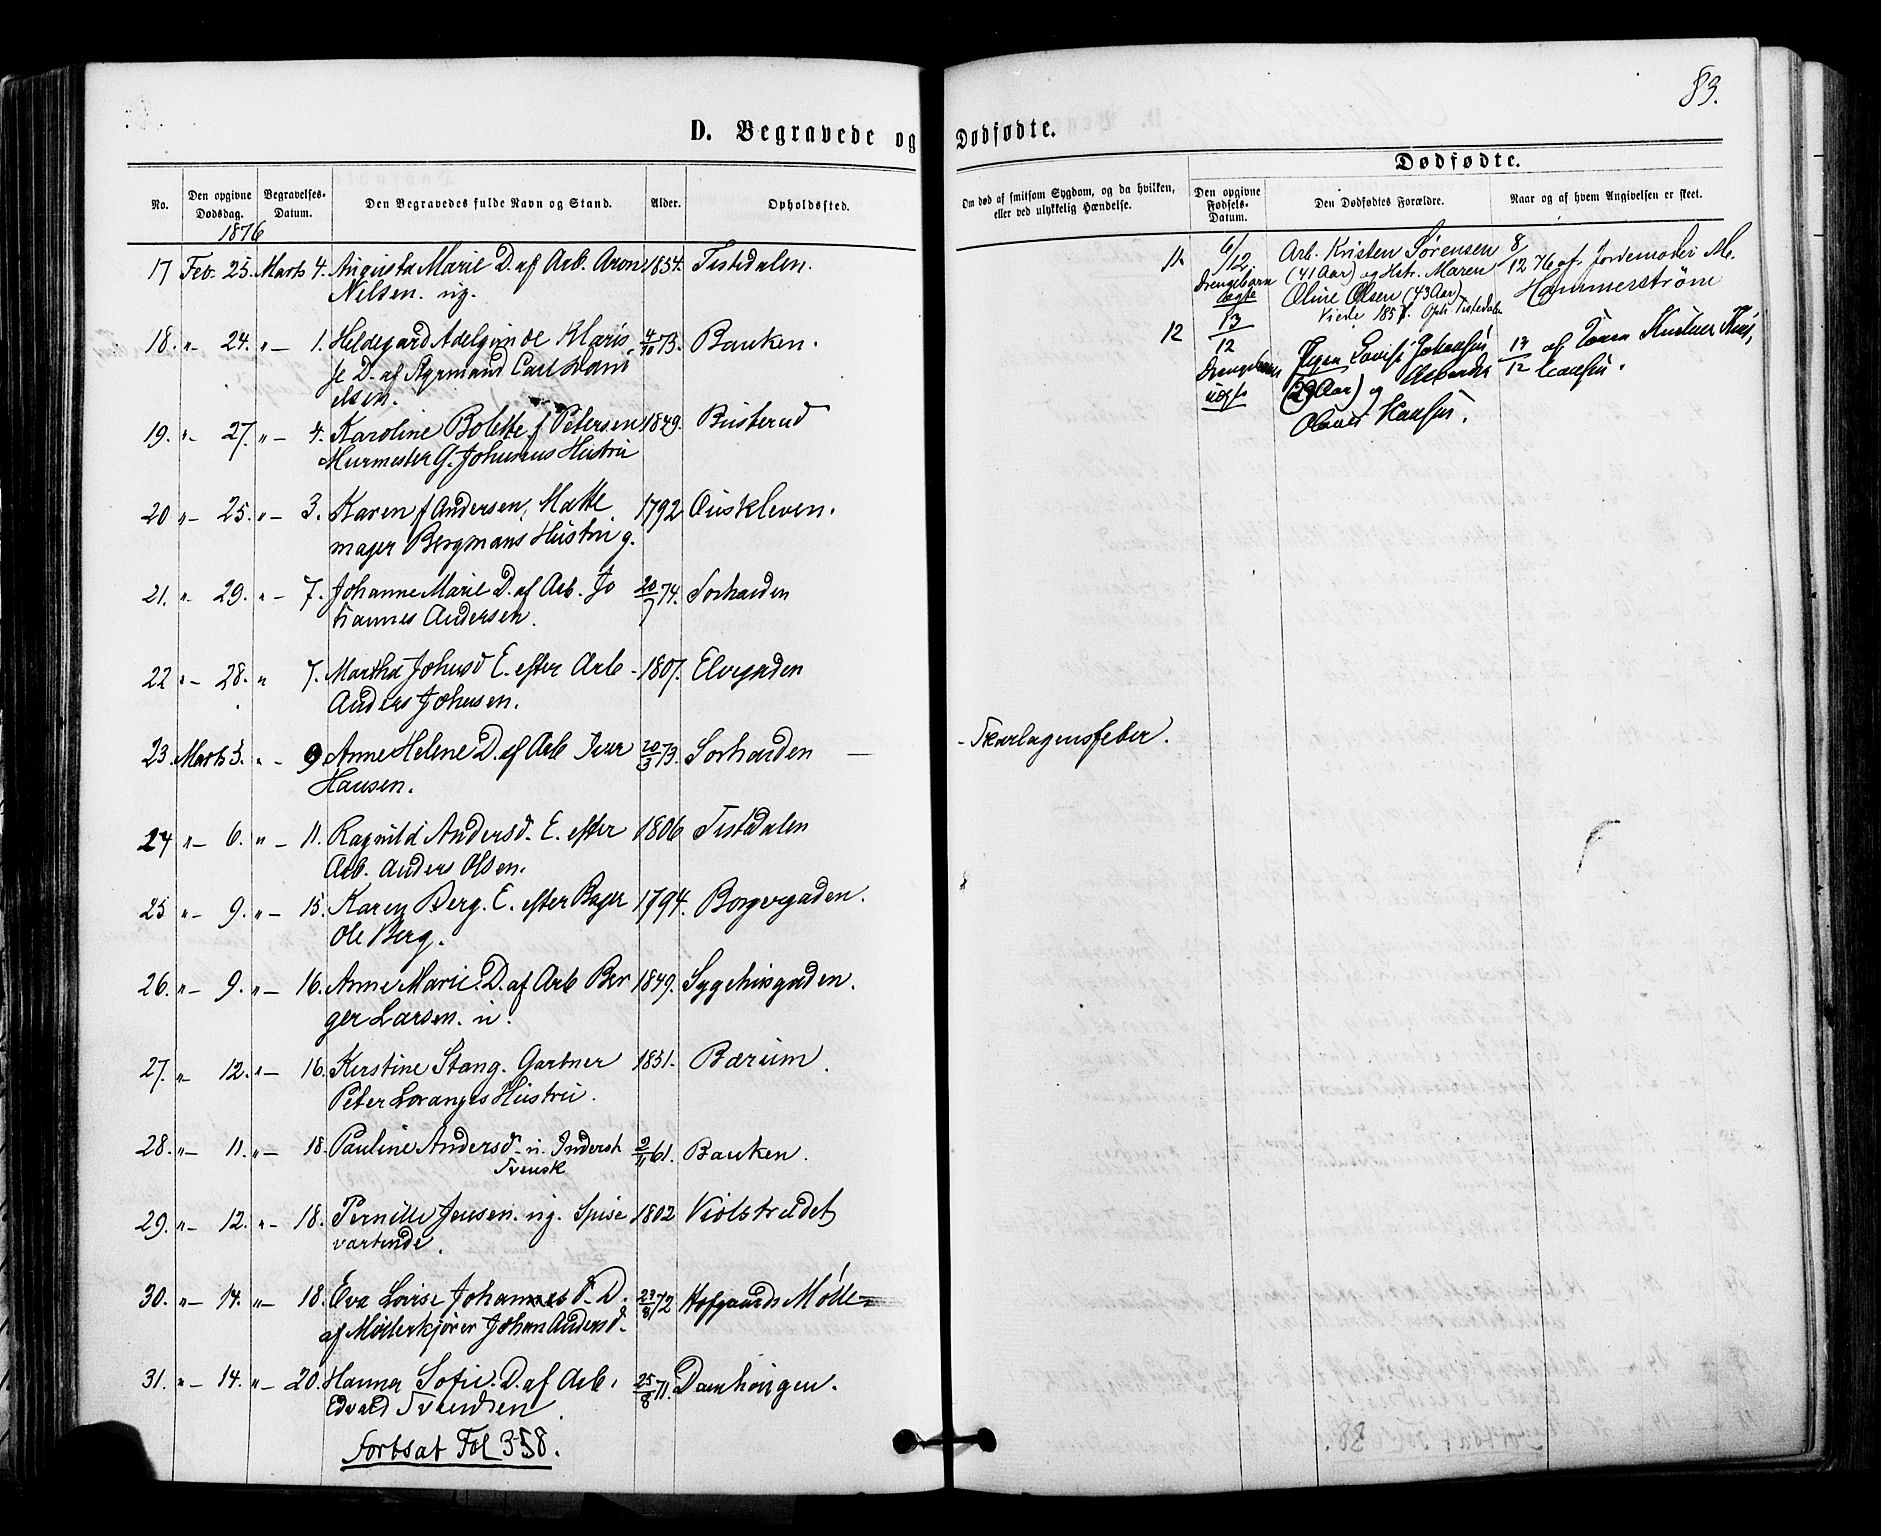 83.
D. Begravede og Dødfødte.
No.
Den opgivne Dødsdag.
Begravelses-Datum.
Den Begravedes fulde Navn og Stand.
Alder.
Opholdssted.
1876
17 Feb. 25. Marts 4. Augusta Marie D. af Arb. Aron 1854. Tistedalen.
Nilsen. ug.
18. " 24. " 1. Hildegard Adelgunde Klaris 4/10 73. Banken.
se D. af Styrmand Carl Dani
elsen.
19. " 27. " 4. Karoline Bolette f Petersen 1849. Busterud
Murmester G. Johnsens Hustru
20 " 25. " 3. Karen f Andersen, Matte 1792 Ouskleven.
mager Bergmans Hustru g.
21. " 29. " 7. Johanne Marie D. af Arb. Jo 20/7 74. Sorhauden
hannes Andersen.
22 " 28. " 7. Martha Johnsd E. efter Arb 1807. Elvegaden
Anders Johnsen.
23. Marts 3. " 9 Anne Helene D. af Arb Iver 20/3 73. Sorhauden
Hansen.
24 " 6. " 11. Ragnild Andersd. E. efter 1806 Tistedalen
Arb. Anders Olsen.
25 " 9. " 15. Karen Berg. E. efter Bager 1794. Borgergaden.
Ole Berg.
26. " 9. " 16. Anne Marie D. af Arb Ber 1849. Sygehusgaden.
ger Larsen. u.
27. " 12. " 16. Kerstine Stang. Gartner 1831. Bærum.
Peter Loranges Hustru.
28. " 11. " 18. Pauline Andersd. u. Inderst 2/11 61. Banken.
Svensk
29. " 12. " 18. Pernille Jensen. ug. Spise 1802 Violstrædet
vertinde.
30. " 14. " 18. Eva Lovise Johannesd. D. 23/8 72 Hofgaards Mølle
af Møllerkjører Johan Andersd.
31. " 14. " 20. Hanna Sofie. D. af Arb. 25/8 71. Damhaugen.
Edvard Svendsen
Fortsat Fol 358.
Om død af smitsom Sygdom, og da hvilken, eller ved ulykkelig Hændelse.
Skarlagensfeber.
Dødfødte.
Den opgivne Fødsels-Datum.
Den Dødfødtes Forældre.
Naar og af hvem Angivelsen er skeet.
11 6/12 Arb. Kristen Sørensen 8/12 76 af Jordemoder M.
Drengebarn (41 Aar) og Hstr. Maren Hammerstrøm
ægte Oline Olsen (43 Aar)
Viede 1857. Oph. Tistedalen
12 13/12 Pigen Lovise Johansen 13/12 af
Drengebarn (29 Aar) og Arbeider
uægte Hansen.